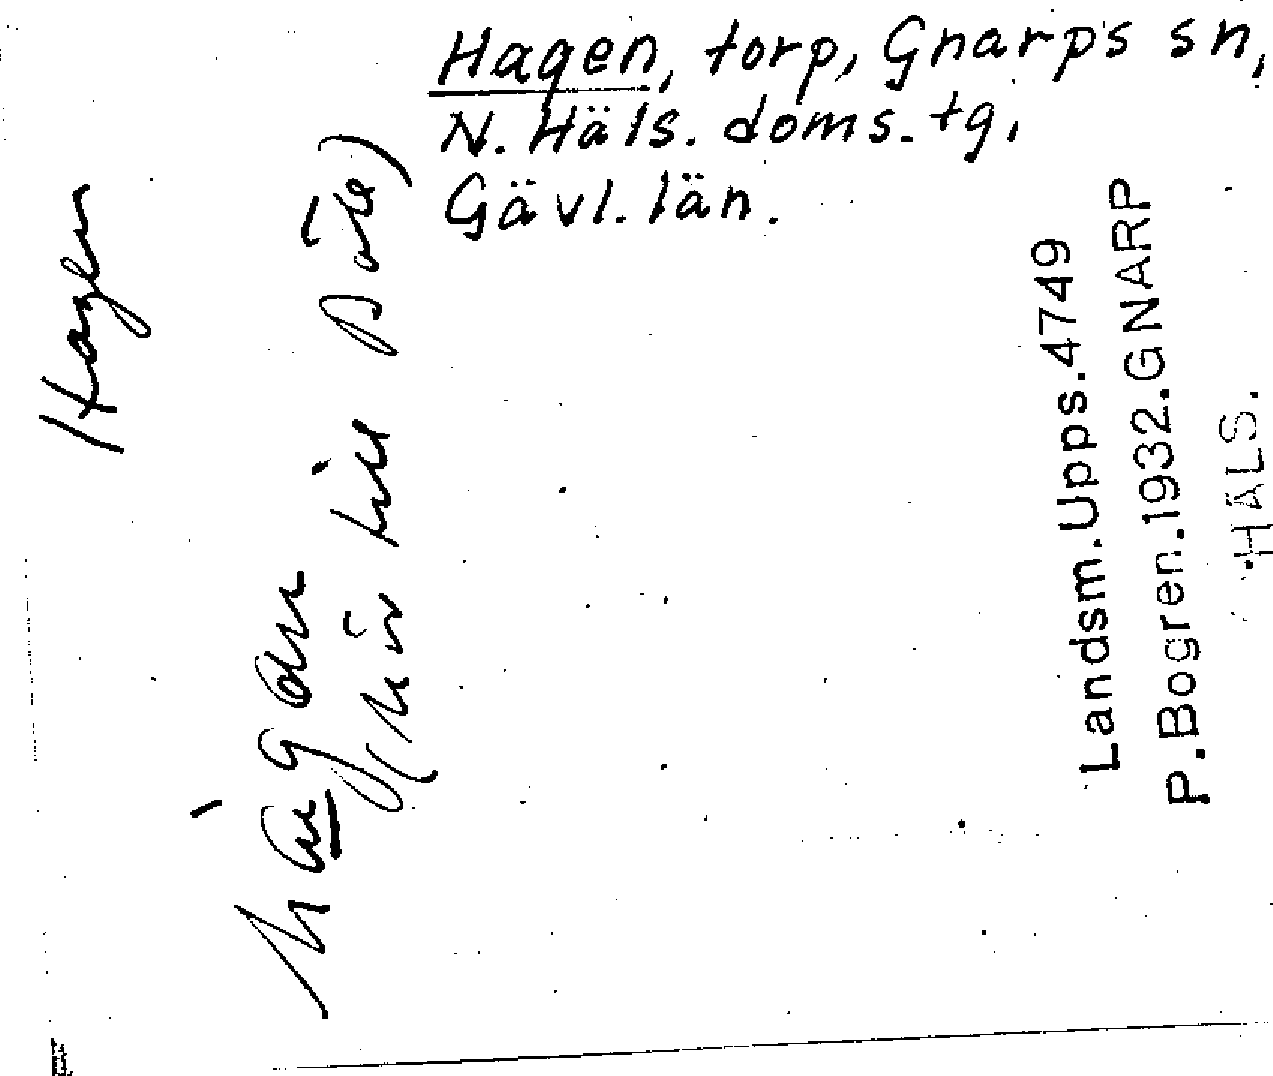 Hagen, torp, Gnarps sn,
N. Häls. doms. tg,
Gävl. län.
Hagen
hàgan
till
Landsm. Upps. 4749
P. Bogren. 1932. GNARP
HÄLS.